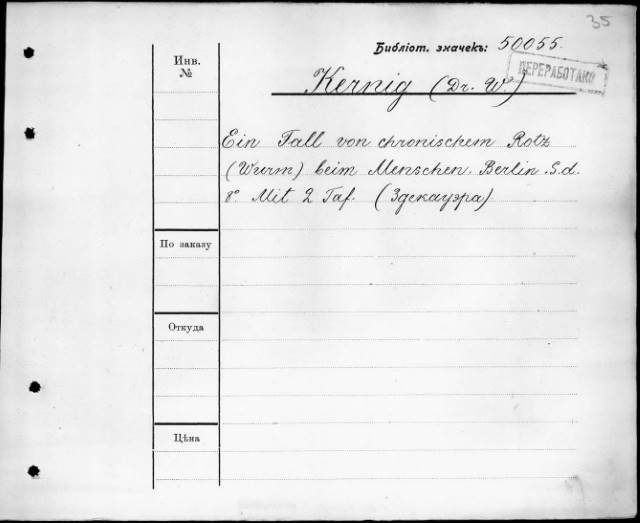 35
Библіот. значекъ: 50055.
ПЕРЕРАБОТАНО
Инв.
№
Kernig (Dr. W.)
Ein Fall von chronischem Rotz
(Wurm) beim Menschen. Berlin. S.d.
8º Mit 2 Taf. (Здекауэра)
По заказу
Откуда
Цѣна